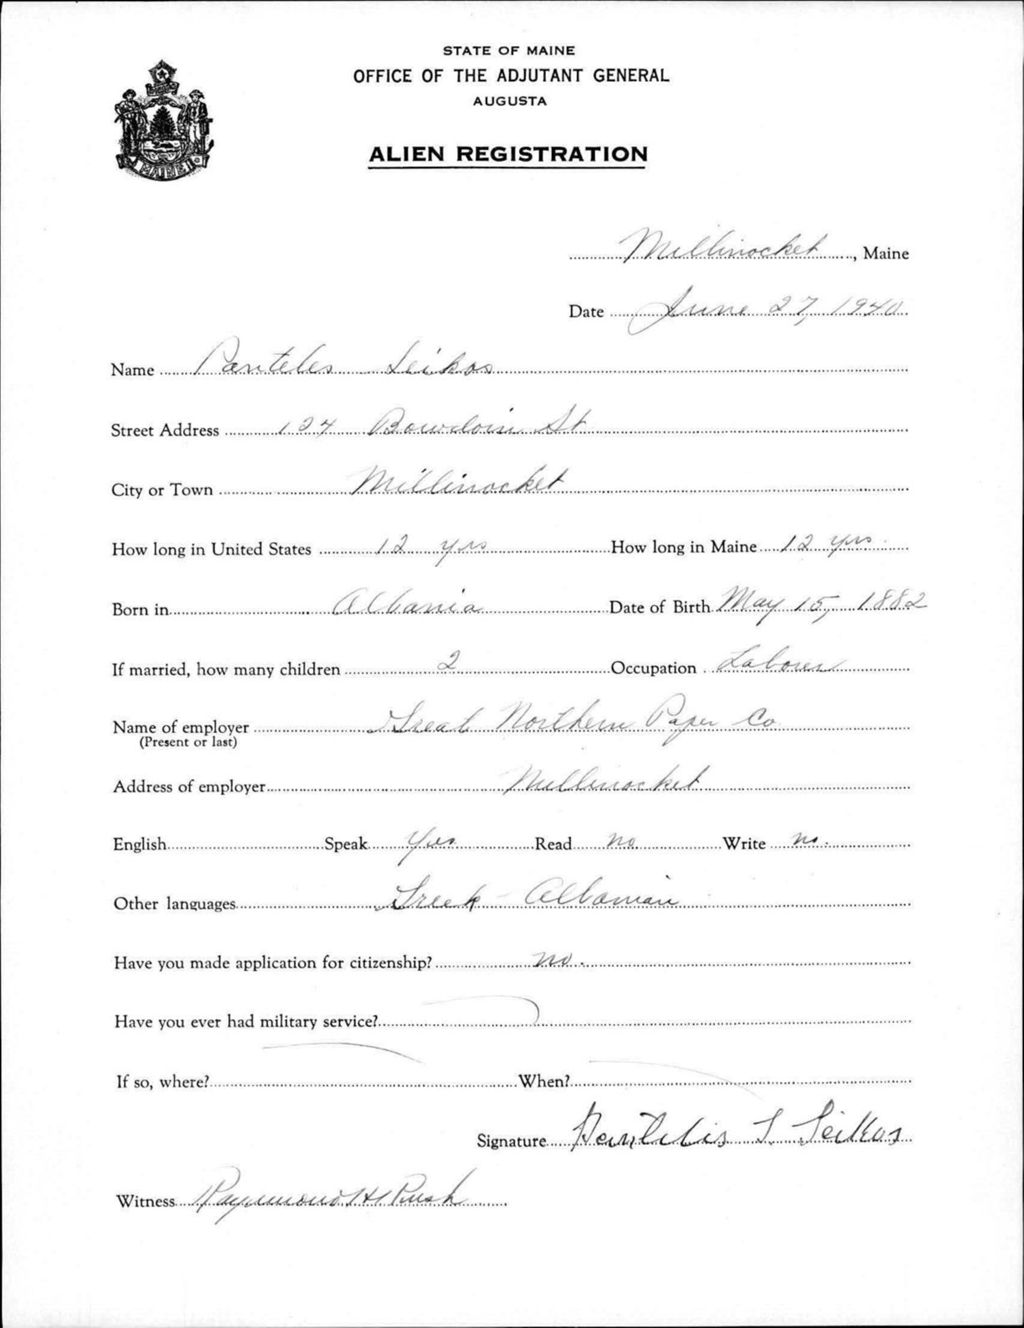 STATE OF MAINE
OFFICE OF THE ADJUTANT GENERAL
AUGUSTA
ALIEN REGISTRATION
MAINE
Millinocket, Maine
Date June 27, 1940
Name Panteles Seikos
Street Address 124 Bowdoin St
City or Town Millinocket
How long in United States 12 yrs How long in Maine 12 yrs.
Born in Albania Date of Birth May 15, 1882
If married, how many children 2 Occupation Laborer
Name of employer Great Northern Paper Co
(Present or last)
Address of employer Millinocket
English Speak Yes Read No. Write No.
Other languages Greek - Albanian
Have you made application for citizenship? No.
Have you ever had military service?
If so, where? When?
Signature Pantelis S Seikos
Witness Raymond H Rush